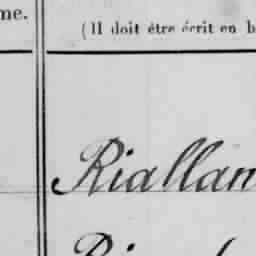 me.
(Il doit être écrit en b
Riallan